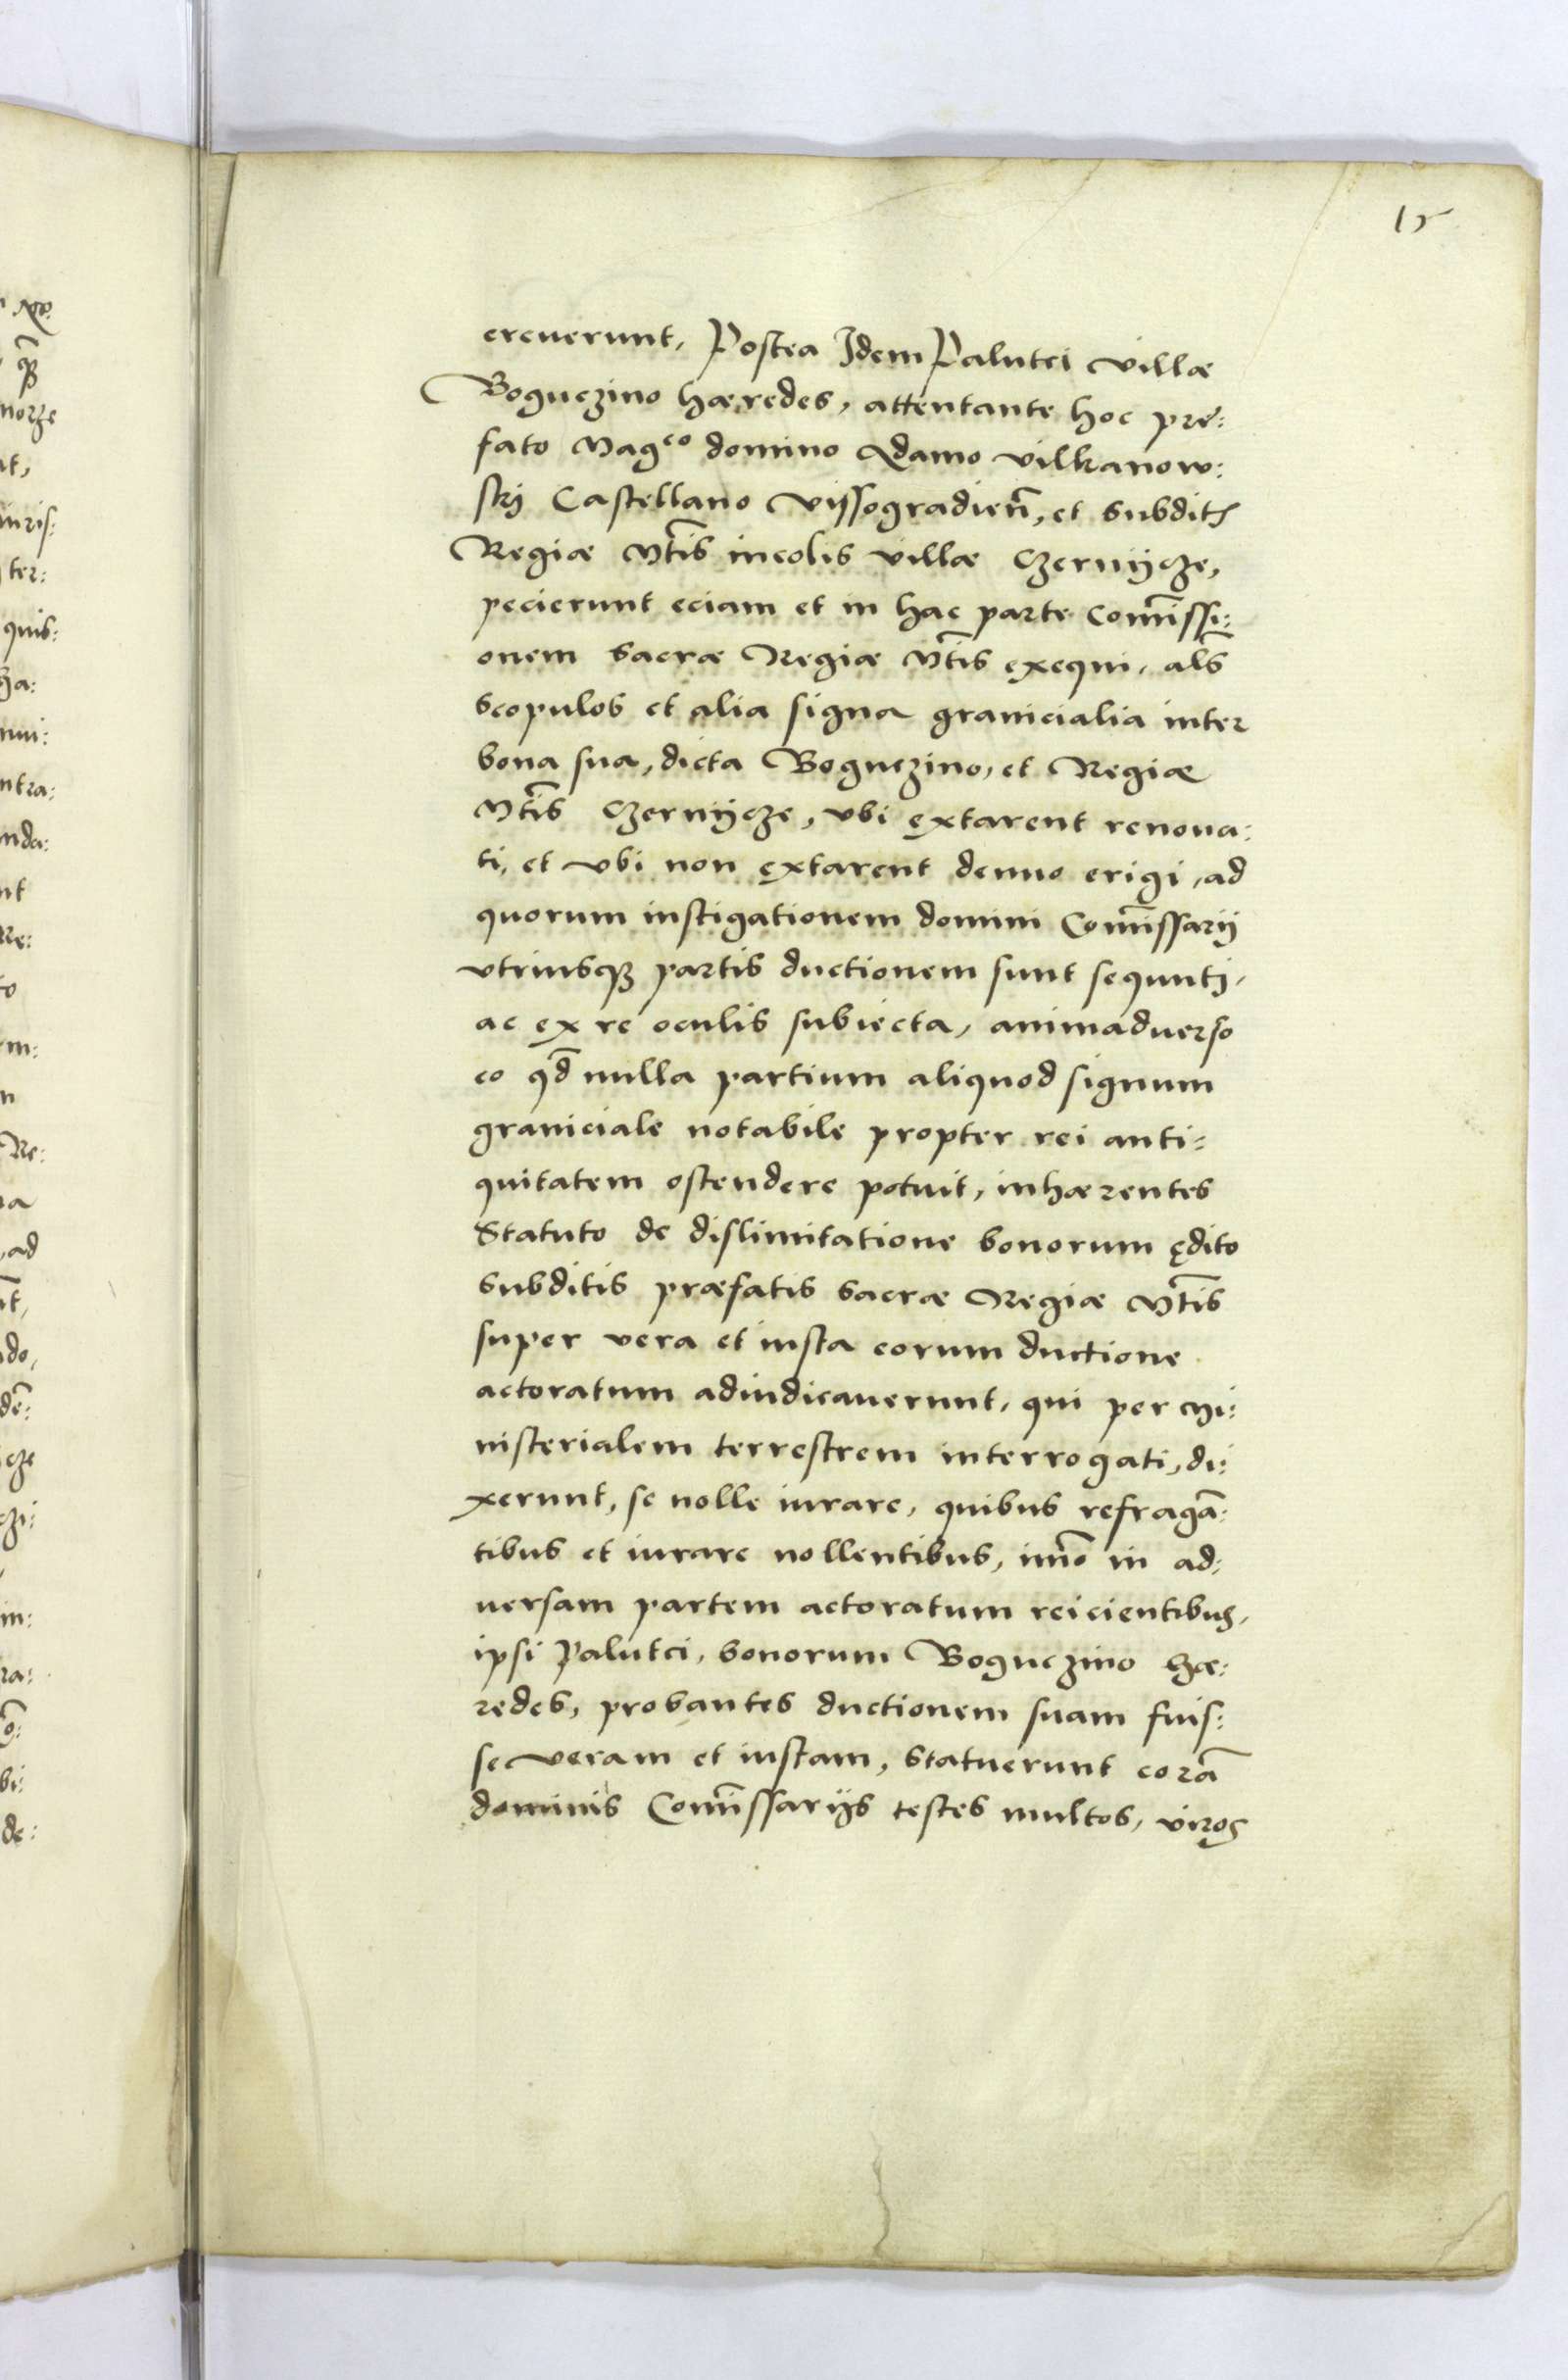 15
creuerunt, Postea Idem Palutci villæ
Boguczino hæredes, attentante hoc præ:
fato Magco domino Adamo vilkanow:
skij Castellano vijssogradien̄, et subditis
Regiæ M̄tis incolis villæ Czernijcze,
pecierunt eciam et in hac parte Com̄issi:
onem sacræ Regiæ M̄tis exequi, als̄
scopulos et alia signa granicialia inter
bona sua, dicta Boguczino, et Regiæ
M̄tis Czernijcze, vbi extarent renoua:
ri, et vbi non extarent denuo erigi, ad
quorum instigationem domini Com̄issarij
vtriusqȝ partis ductionem sunt sequuti,
ac ex re oculis subiecta, animaduerso
eo qd̄ nulla partium aliquod signum
graniciale notabile propter rei anti:
quitatem ostendere potuit, inhærentes
Statuto de dislimitatione bonorum ędito
subditis præfatis sacræ Regiæ M̄tis
super vera et iusta eorum ductione
actoratum adiudicauerunt, qui per mi:
nisterialem terrestrem interrogati, di:
xerunt, se nolle iurare, quibus refragā:
tibus et iurare nollentibus, im̄o in ad:
uersam partem actoratum reicientibus,
ipsi Palutci, bonorum Boguczino hæ:
redes, probantes ductionem suam fuis:
se veram et iustam, statuerunt corā
dominis Com̄issarijs testes multos, viros